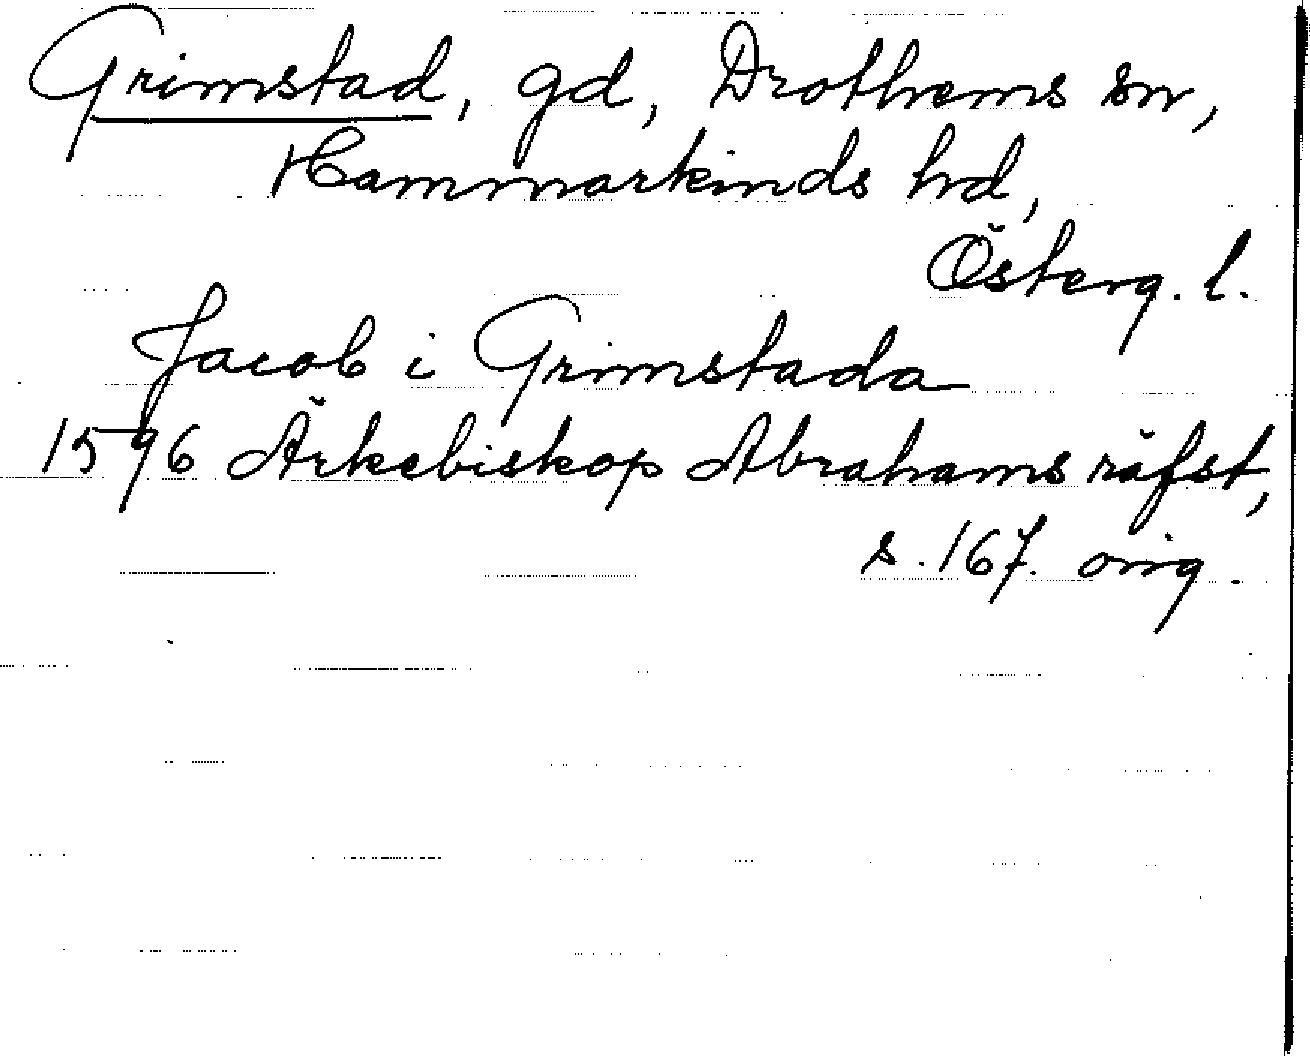 Grimstad, gd, Drothems sn,
Hammarkinds hd,
Österg. l.
Jacob i Grimstada
1596 Ärkebiskop Abrahams räfst,
s. 167. orig.